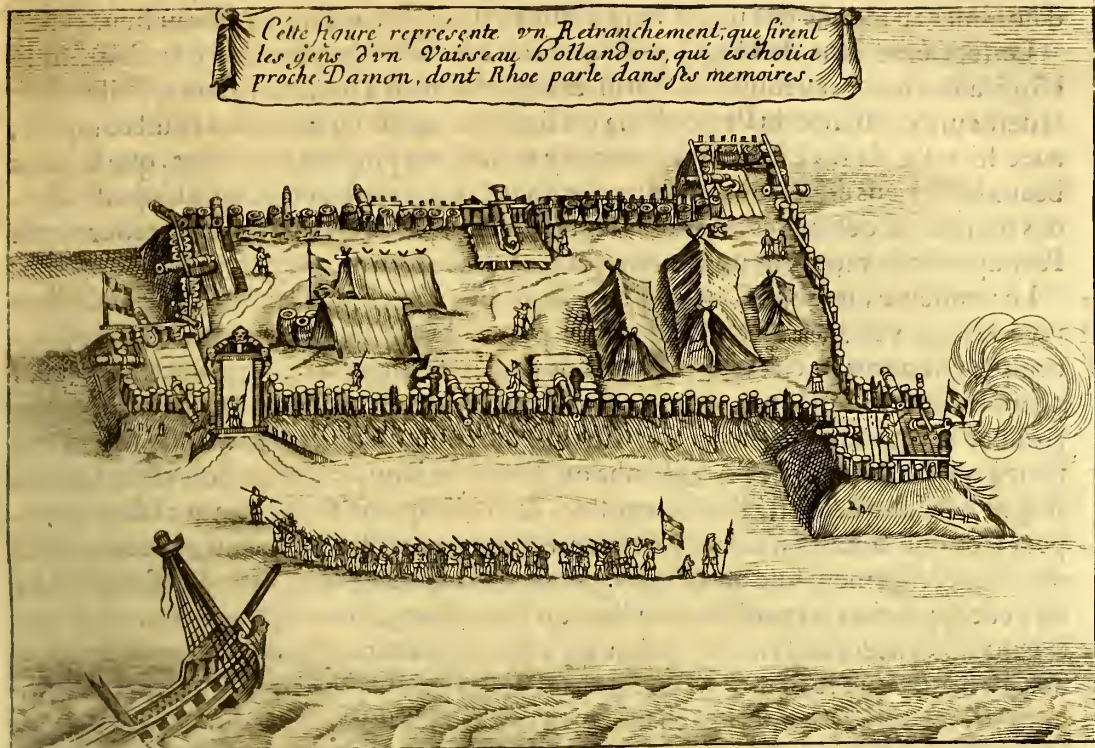 Cétte figure représente vn Retranchement, que firent
les gens d'vn Vaisseau Hollandois, qui eschoüa
proche Damon, dont Rhoe parle dans ses memoires.